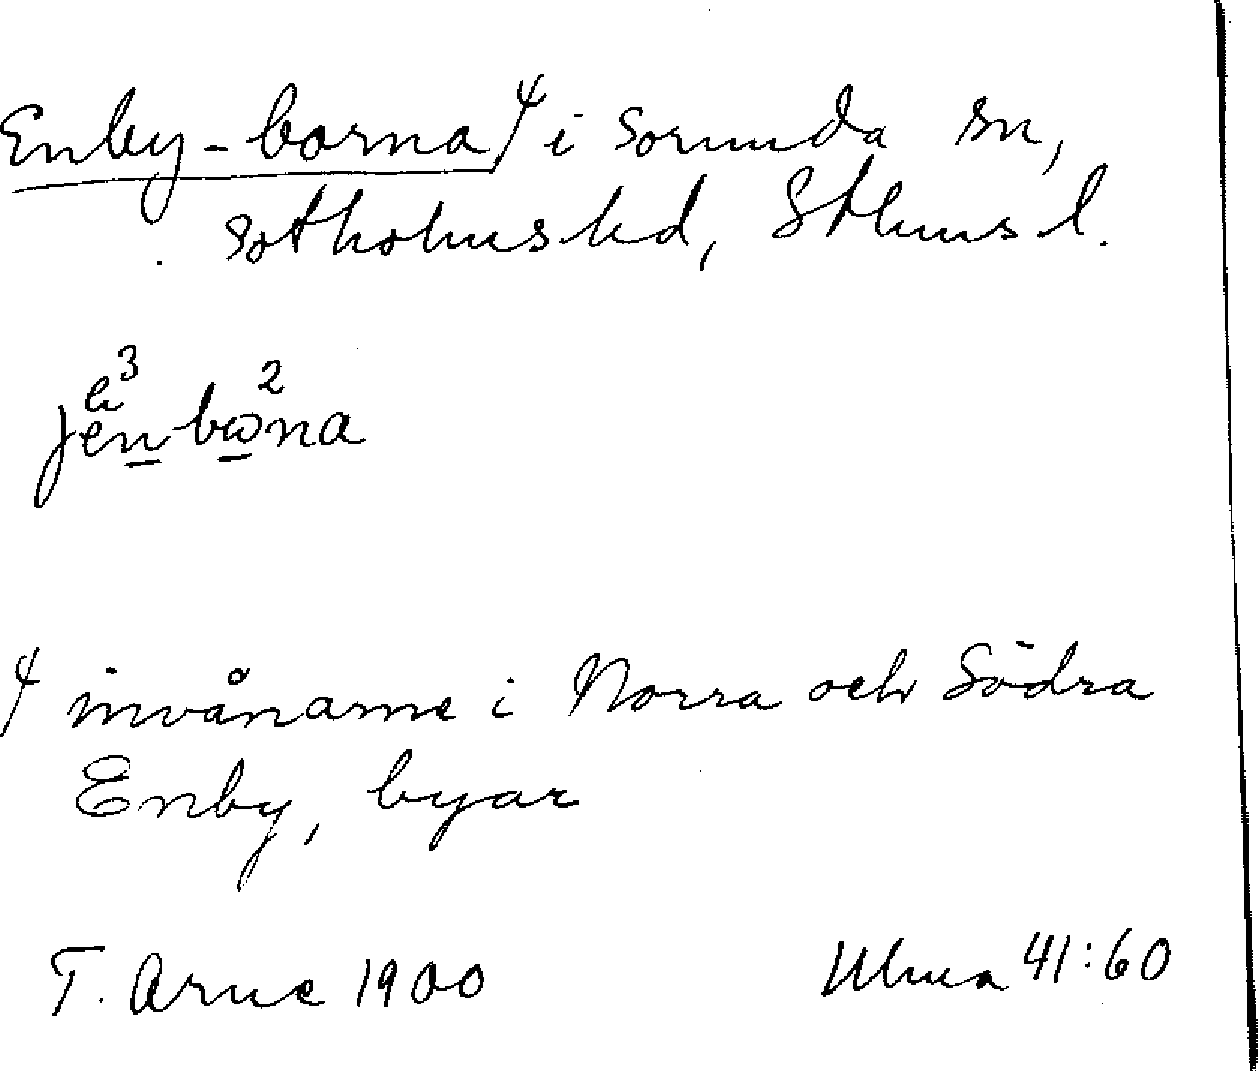 Enby-borna⁴ i Sorunda sn,
Sotholms hd, Sthms l.
jen bωna
⁴ invånarne i Norra och Södra
Enby, byar
T. Arne 1900 Ulma 41:60